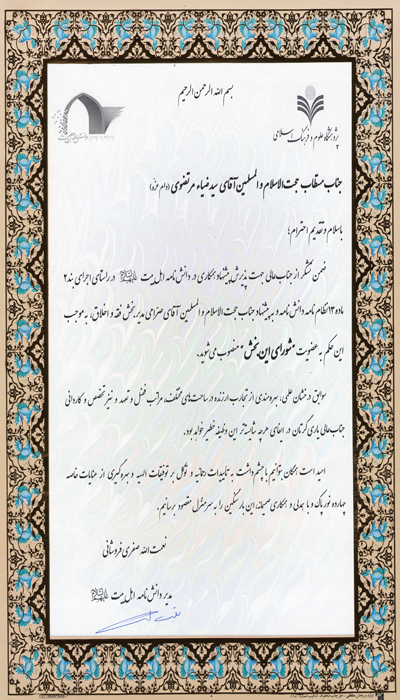 بسم الله الرحمن الرحیم
پژوهشگاه علوم و فرهنگ اسلامی
جناب مستطاب حجت الاسلام و المسلمین آقای سید ضیاء مرتضوی (دام عزه)
با سلام و تقدیم احترام؛
ضمن تشکر از جناب عالی جهت پذیرش پیشنهاد همکاری در دانش نامه اهل بیت در راستای اجرای بند ۲
ماده ۱۳ نظام نامه دانش نامه و به پیشنهاد جناب حجت الاسلام و المسلمین آقای ضرابی مدیر بخش فقه و اخلاق، به موجب
این حکم به عضویت "شورای این بخش" منصوب می شوید.
سوابق درخشان علمی، بهره مندی از تجارب ارزنده در ساحت های مختلف، مراتب فضل و تعهد و نیز تخصص و کاردانی
جناب عالی یاری گرتان در ایفای هرچه شایسته تر این وظیفه خطیر خواهد بود.
امید است همگان بتوانیم با چشم داشت به تأییدات رحمانیه و توکل بر توفیقات الهیه و بهره گیری از عنایات خاصه
چهارده نور پاک و با همدلی و همکاری صمیمانه، این بار سنگین را به سرمنزل مقصود برسانیم.
نعمت الله صفری فروشانی
مدیر دانش نامه اهل بیت